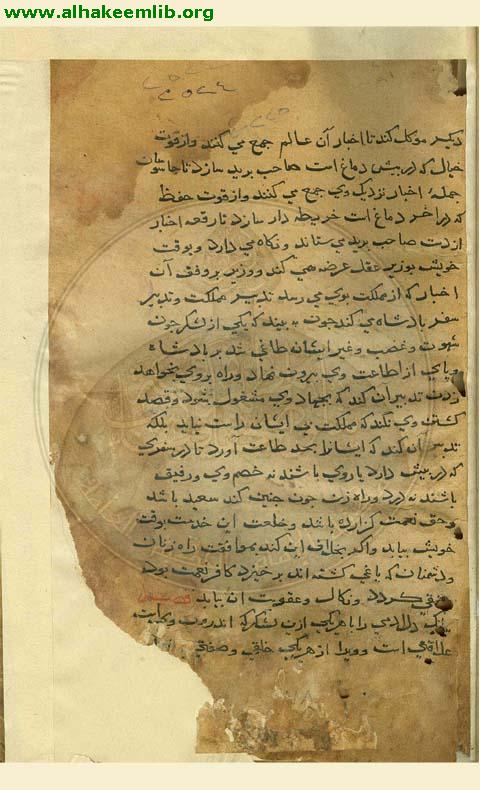 www.alhakeemlib.org
دیکر موکل کند تا اخبار آن عالم جمع می کنند و از قوت
خیال که در پیش دماغ است صاحب برید سازد تا جاسوسان
جمله اخبار نزدیک وی جمع می کنند و از قوت حفظ
که در آخر دماغ است خریطه دار سازد تا رقعه اخبار
از دست صاحب برید می ستاند و نکاه می دارد و بوقت
خویش بوزیر عقل عرضه می کند و وزیر بر وفق آن
اخبار که از مملکت بوی می رسد تدبیر مملکت و تدبیر
سفر پادشاه می کند چون به بیند که یکی از لشکر چون
شهوت و غضب و غیر ایشان طاغی شد بر پادشاه
و پای از اطاعت وی بیرون نهاد و راه بر وی بخواهد
زدن تدبیر آن کند که بجهاد وی مشغول شود و قصد
کشتن وی نکند که مملکت بی ایشان راست نیاید بلکه
تدبیر آن کند که ایشانرا بحد طاعت آورد تا در سفری
که در پیش دارد یار وی باشند نه خصم وی و رفیق
باشند نه دزد و راه زن چون چنین کند سعید باشد
و حق نعمت کزارده باشد و خلعت این خدمت بوقت
خویش بیابد و اکر بخلاف این کند بموافقت راه زنان
و دشمنان که یاغی کشته اند برخیزد کافر نعمت بود
کردد و نکال و عقوبت آن بیابد
دل آدمی را با هر یکی ازین لشکر که اندرون ویست
علاقتی است و ویرا از هر یکی خلقی و صفتی